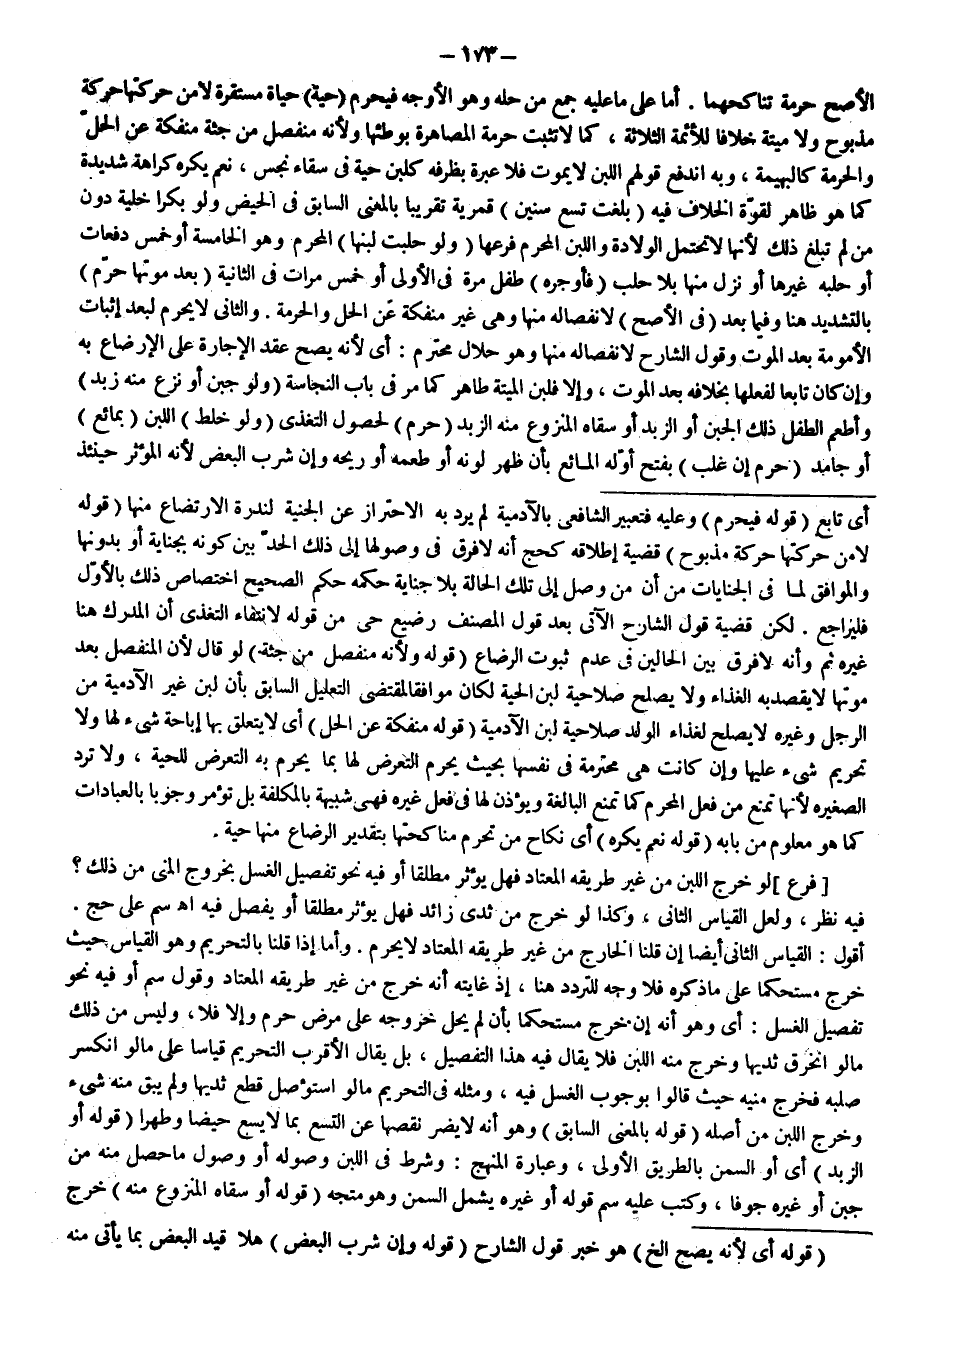 – ١٧٣ –
الأصح حرمة تناكحهما . أما على ماعليه جمع من حله وهو الأوجه فيحرم (حية) حياة مستقرة لامن حركتها حركة
مذبوح ولا ميتة خلافا للأئمة الثلاثة ، كما لاتثبت حرمة المصاهرة بوطئها ولأنه منفصل من جثة منفكة عن الحلّ
والحرمة كالبهيمة ، وبه اندفع قولهم اللبن لايموت فلا عبرة بظرفه كلبن حية فى سقاء نجس ، نعم يكره كراهة شديدة
كما هو ظاهر لقوّة الخلاف فيه ( بلغت تسع سنين ) قمرية تقريبا بالمعنى السابق فى الحيض ولو بكرا خلية دون
من لم تبلغ ذلك لأنها لاتحتمل الولادة واللبن المحرم فرعها ( ولو حلبت لبنها ) المحرم وهو الخامسة أو خمس دفعات
أو حلبه غيرها أو نزل منها بلا حلب ( فأوجره ) طفل مرة فى الأولى أو خمس مرات فى الثانية ( بعد موتها حرّم )
بالتشديد هنا وفيما بعد ( فى الأصح ) لانفصاله منها وهى غير منفكة عن الحل والحرمة . والثانى لايحرم لبعد إثبات
الأمومة بعد الموت وقول الشارح لانفصاله منها وهو حلال محترم : أى لأنه يصح عقد الإجارة على الإرضاع به
وإن كان تابعا لفعلها بخلافه بعد الموت ، وإلا فلبن الميتة طاهر كما مر فى باب النجاسة ( ولو جبن أو نزع منه زبد )
وأطعم الطفل ذلك الجبن أو الزبد أو سقاه المنزوع منه الزبد ( حرم ) لحصول التغذى ( ولو خلط ) اللبن ( بمائع )
أو جامد ( حرم إن غلب ) بفتح أوّله المائع بأن ظهر لونه أو طعمه أو ريحه وإن شرب البعض لأنه المؤثر حينئذ
أى تابع ( قوله فيحرم ) وعليه فتعبير الشافعى بالآدمية لم يرد به الاحتراز عن الجنية لندرة الارتضاع منها ( قوله
لامن حركتها حركة مذبوح ) قضية إطلاقه كحج أنه لافرق فى وصولها إلى ذلك الحدّ بين كونه بجناية أو بدونها
والموافق لما فى الجنايات من أن من وصل إلى تلك الحالة بلا جناية حكمه حكم الصحيح اختصاص ذلك بالأوّل
فليراجع . لكن قضية قول الشارح الآتى بعد قول المصنف رضيع حى من قوله لانتفاء التغذى أن المدرك هنا
غيره ثم وأنه لافرق بين الحالين فى عدم ثبوت الرضاع ( قوله ولأنه منفصل من جثة ) لو قال لأن المنفصل بعد
موتها لايقصد به الغذاء ولا يصلح صلاحية لبن الحية لكان موافقا لمقتضى التعليل السابق بأن لبن غير الآدمية من
الرجل وغيره لايصلح لغذاء الولد صلاحية لبن الآدمية ( قوله منفكة عن الحل ) أى لايتعلق بها إباحة شىء لها ولا
تحريم شىء عليها وإن كانت هى محترمة فى نفسها بحيث يحرم التعرض لها بما يحرم به التعرض للحية ، ولا ترد
الصغيره لأنها تمنع من فعل المحرم كما تمنع البالغة ويؤذن لها فى فعل غيره فهى شبيهة بالمكلفة بل تؤمر وجوبا بالعبادات
كما هو معلوم من بابه ( قوله نعم يكره ) أى نكاح من تحرم مناكحتها بتقدير الرضاع منها حية .
[ فرع ] لو خرج اللبن من غير طريقه المعتاد فهل يؤثر مطلقا أو فيه نحو تفصيل الغسل بخروج المنى من ذلك ؟
فيه نظر ، ولعل القياس الثانى ، وكذا لو خرج من ثدى زائد فهل يؤثر مطلقا أو يفصل فيه اه سم على حج .
أقول : القياس الثانى أيضا إن قلنا الخارج من غير طريقه المعتاد لايحرم . وأما إذا قلنا بالتحريم وهو القياس حيث
خرج مستحكما على ماذكره فلا وجه للتردد هنا ، إذ غايته أنه خرج من غير طريقه المعتاد وقول سم أو فيه نحو
تفصيل الغسل : أى وهو أنه إن خرج مستحكما بأن لم يحل خروجه على مرض حرم وإلا فلا ، وليس من ذلك
مالو انخرق ثديها وخرج منه اللبن فلا يقال فيه هذا التفصيل ، بل يقال الأقرب التحريم قياسا على مالو انكسر
صلبه فخرج منيه حيث قالوا بوجوب الغسل فيه ، ومثله فى التحريم مالو استؤصل قطع ثديها ولم يبق منه شىء
وخرج اللبن من أصله ( قوله بالمعنى السابق ) وهو أنه لايضر نقصها عن التسع بما لايسع حيضا وطهرا ( قوله أو
الزبد ) أى أو السمن بالطريق الأولى ، وعبارة المنهج : وشرط فى اللبن وصوله أو وصول ماحصل منه من
جبن أو غيره جوفا ، وكتب عليه سم قوله أو غيره يشمل السمن وهو متجه ( قوله أو سقاه المنزوع منه ) خرج
( قوله أى لأنه يصح الخ ) هو خبر قول الشارح ( قوله وإن شرب البعض ) هلا قيد البعض بما يأتى منه